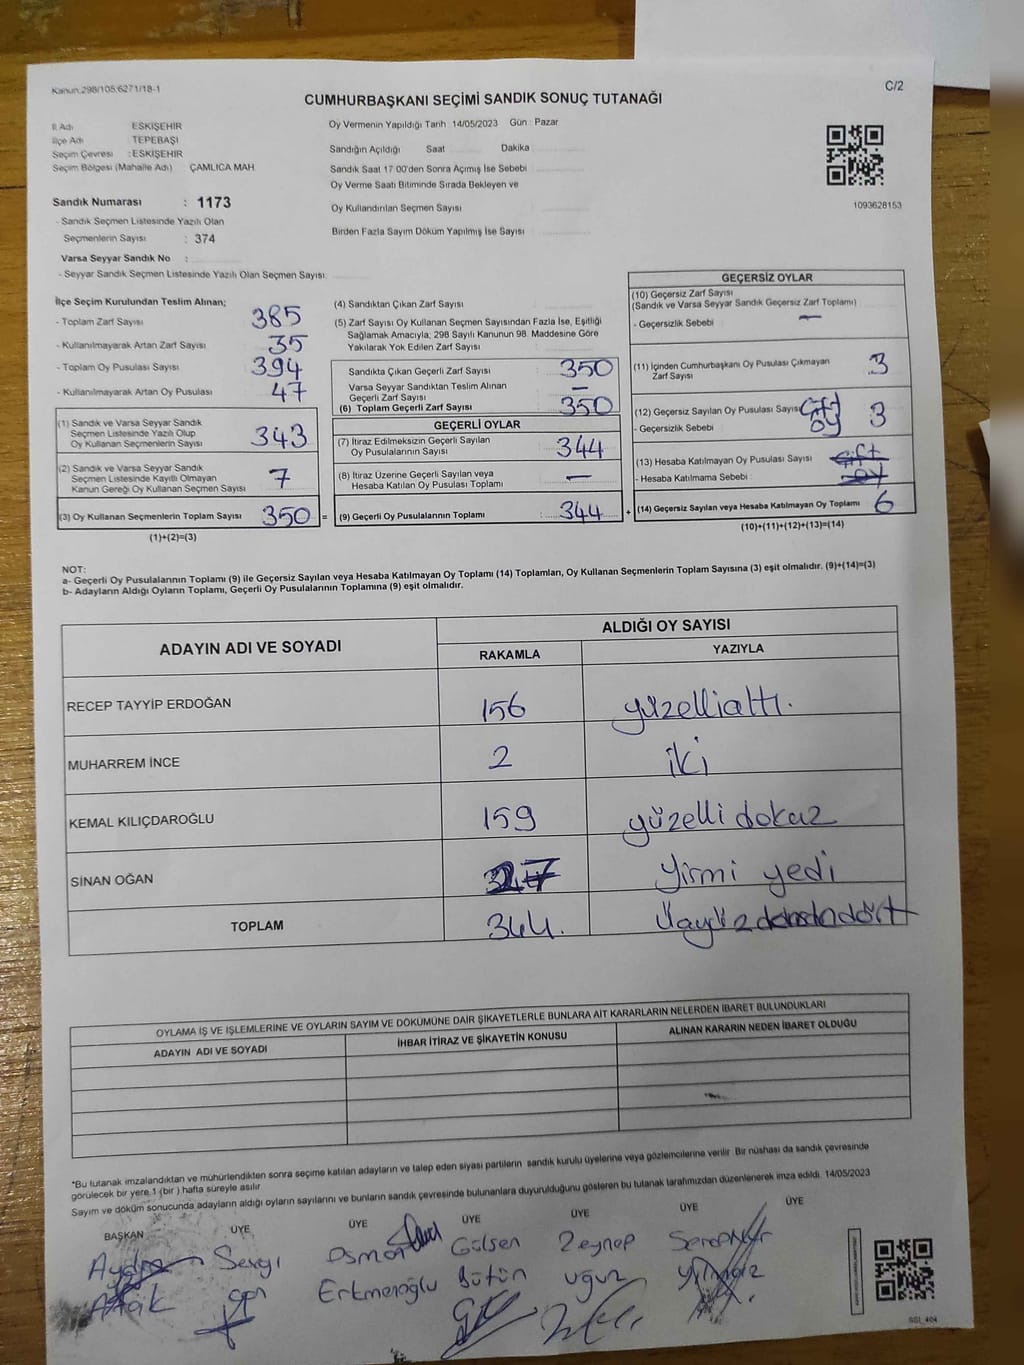 Kanun.298/105;6271/18-1
C/2
CUMHURBAŞKANI SEÇİMİ SANDIK SONUÇ TUTANAĞI
İl Adı ESKİŞEHİR
İlçe Adı TEPEBAŞI
Seçim Çevresi : ESKİŞEHİR
Seçim Bölgesi (Mahalle Adı) ÇAMLICA MAH
Sandık Numarası : 1173
- Sandık Seçmen Listesinde Yazılı Olan
Seçmenlerin Sayısı : 374
Varsa Seyyar Sandık No :
- Seyyar Sandık Seçmen Listesinde Yazılı Olan Seçmen Sayısı
Oy Vermenin Yapıldığı Tarih 14/05/2023 Gün : Pazar
Sandığın Açıldığı Saat Dakika
Sandık Saat 17:00'den Sonra Açımış İse Sebebi
Oy Verme Saati Bitiminde Sırada Bekleyen ve
Oy Kullandırılan Seçmen Sayısı
Birden Fazla Sayım Döküm Yapılmış İse Sayısı
1093628153
İlçe Seçim Kurulundan Teslim Alınan;
- Toplam Zarf Sayısı 385
- Kullanılmayarak Artan Zarf Sayısı 35
- Toplam Oy Pusulası Sayısı 394
- Kullanılmayarak Artan Oy Pusulası 47
(1) Sandık ve Varsa Seyyar Sandık
Seçmen Listesinde Yazılı Olup
Oy Kullanan Seçmenlerin Sayısı 343
(2) Sandık ve Varsa Seyyar Sandık
Seçmen Listesinde Kayıtlı Olmayan
Kanun Gereği Oy Kullanan Seçmen Sayısı 7
(3) Oy Kullanan Seçmenlerin Toplam Sayısı 350 =
(1)+(2)=(3)
(4) Sandıktan Çıkan Zarf Sayısı
(5) Zarf Sayısı Oy Kullanan Seçmen Sayısından Fazla İse, Eşitliği
Sağlamak Amacıyla; 298 Sayılı Kanunun 98. Maddesine Göre
Yakılarak Yok Edilen Zarf Sayısı
Sandıkta Çıkan Geçerli Zarf Sayısı : 350
Varsa Seyyar Sandıktan Teslim Alınan
Geçerli Zarf Sayısı : —
(6) Toplam Geçerli Zarf Sayısı 350
GEÇERLİ OYLAR
(7) İtiraz Edilmeksizin Geçerli Sayılan
Oy Pusulalarının Sayısı : 344
(8) İtiraz Üzerine Geçerli Sayılan veya
Hesaba Katılan Oy Pusulası Toplamı : —
(9) Geçerli Oy Pusulalarının Toplamı : 344 +
GEÇERSİZ OYLAR
(10) Geçersiz Zarf Sayısı
(Sandık ve Varsa Seyyar Sandık Geçersiz Zarf Toplamı)
- Geçersizlik Sebebi : —
(11) İçinden Cumhurbaşkanı Oy Pusulası Çıkmayan
Zarf Sayısı 3
(12) Geçersiz Sayılan Oy Pusulası Sayısı Çift 3
- Geçersizlik Sebebi oy
(13) Hesaba Katılmayan Oy Pusulası Sayısı Çift
- Hesaba Katılmama Sebebi : oy
(14) Geçersiz Sayılan veya Hesaba Katılmayan Oy Toplamı 6
(10)+(11)+(12)+(13)=(14)
NOT:
a- Geçerli Oy Pusulalarının Toplamı (9) ile Geçersiz Sayılan veya Hesaba Katılmayan Oy Toplamı (14) Toplamları, Oy Kullanan Seçmenlerin Toplam Sayısına (3) eşit olmalıdır. (9)+(14)=(3)
b- Adayların Aldığı Oyların Toplamı, Geçerli Oy Pusulalarının Toplamına (9) eşit olmalıdır.
ADAYIN ADI VE SOYADI ALDIĞI OY SAYISI
RAKAMLA YAZIYLA
RECEP TAYYİP ERDOĞAN 156 yüzellialtı.
MUHARREM İNCE 2 iki
KEMAL KILIÇDAROĞLU 159 yüzelli dokuz
SİNAN OĞAN 27 Yirmi yedi
TOPLAM 344.
OYLAMA İŞ VE İŞLEMLERİNE VE OYLARIN SAYIM VE DÖKÜMÜNE DAİR ŞİKAYETLERLE BUNLARA AİT KARARLARIN NELERDEN İBARET BULUNDUKLARI
ADAYIN ADI VE SOYADI İHBAR İTİRAZ VE ŞİKAYETİN KONUSU ALINAN KARARIN NEDEN İBARET OLDUĞU
*Bu tutanak imzalandıktan ve mühürlendikten sonra seçime katılan adayların ve talep eden siyasi partilerin sandık kurulu üyelerine veya gözlemcilerine verilir. Bir nüshası da sandık çevresinde
görülecek bir yere 1 (bir) hafta süreyle asılır.
Sayım ve döküm sonucunda adayların aldığı oyların sayılarını ve bunların sandık çevresinde bulunanlara duyurulduğunu gösteren bu tutanak tarafımızdan düzenlenerek imza edildi. 14/05/2023
BAŞKAN ÜYE ÜYE ÜYE ÜYE ÜYE ÜYE
Sevgi Osman Gülsen Zeynep
Ertmenoğlu Bütün uğuz Yılmaz
SSI_404